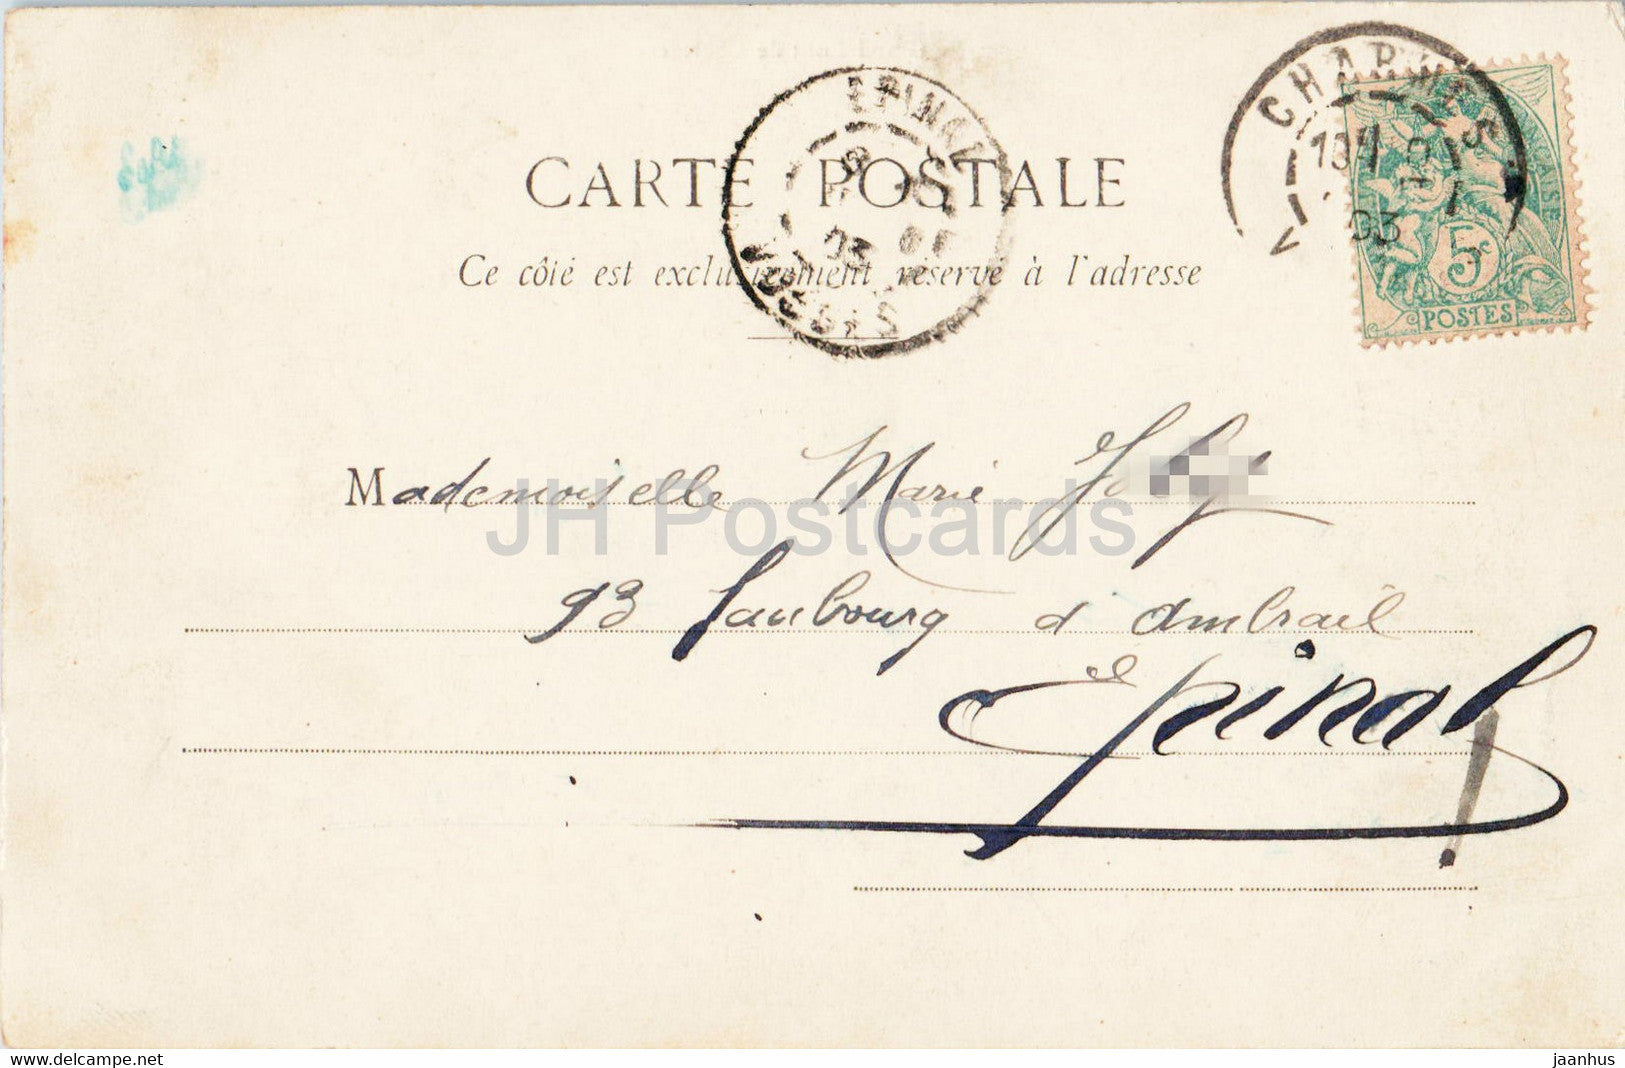 CARTE POSTALE
Ce côté est exclusivement réservé à l'adresse
EPINAL
03
VOSGES
CHARMES
03
5c
POSTES
Mademoiselle Marie
JH Postcards
93 Faubourg d'Ambrail
Epinal!
www.delcampe.net
jaanhus